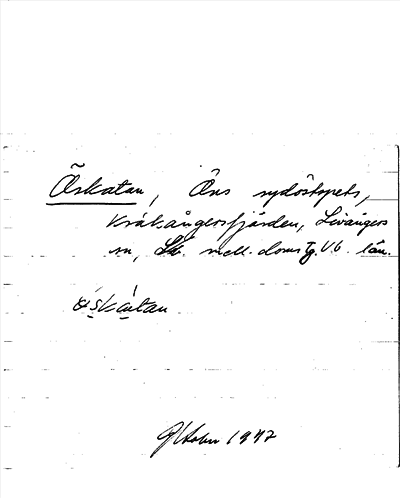 Öskatan, Öns sydöstspets,
Kråkångersfjärden, Lövångers
sn, Sk. mell. doms Tg. Vb. län.
öskàtan
1947